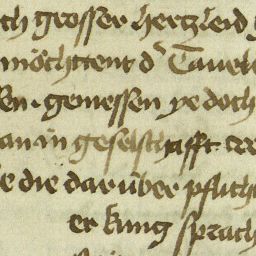 ch grosser hertzleid
möchttent d' Tauel
en. geniessen ye doch
an in geselschafft
e die darüber pflich
er kung sprach